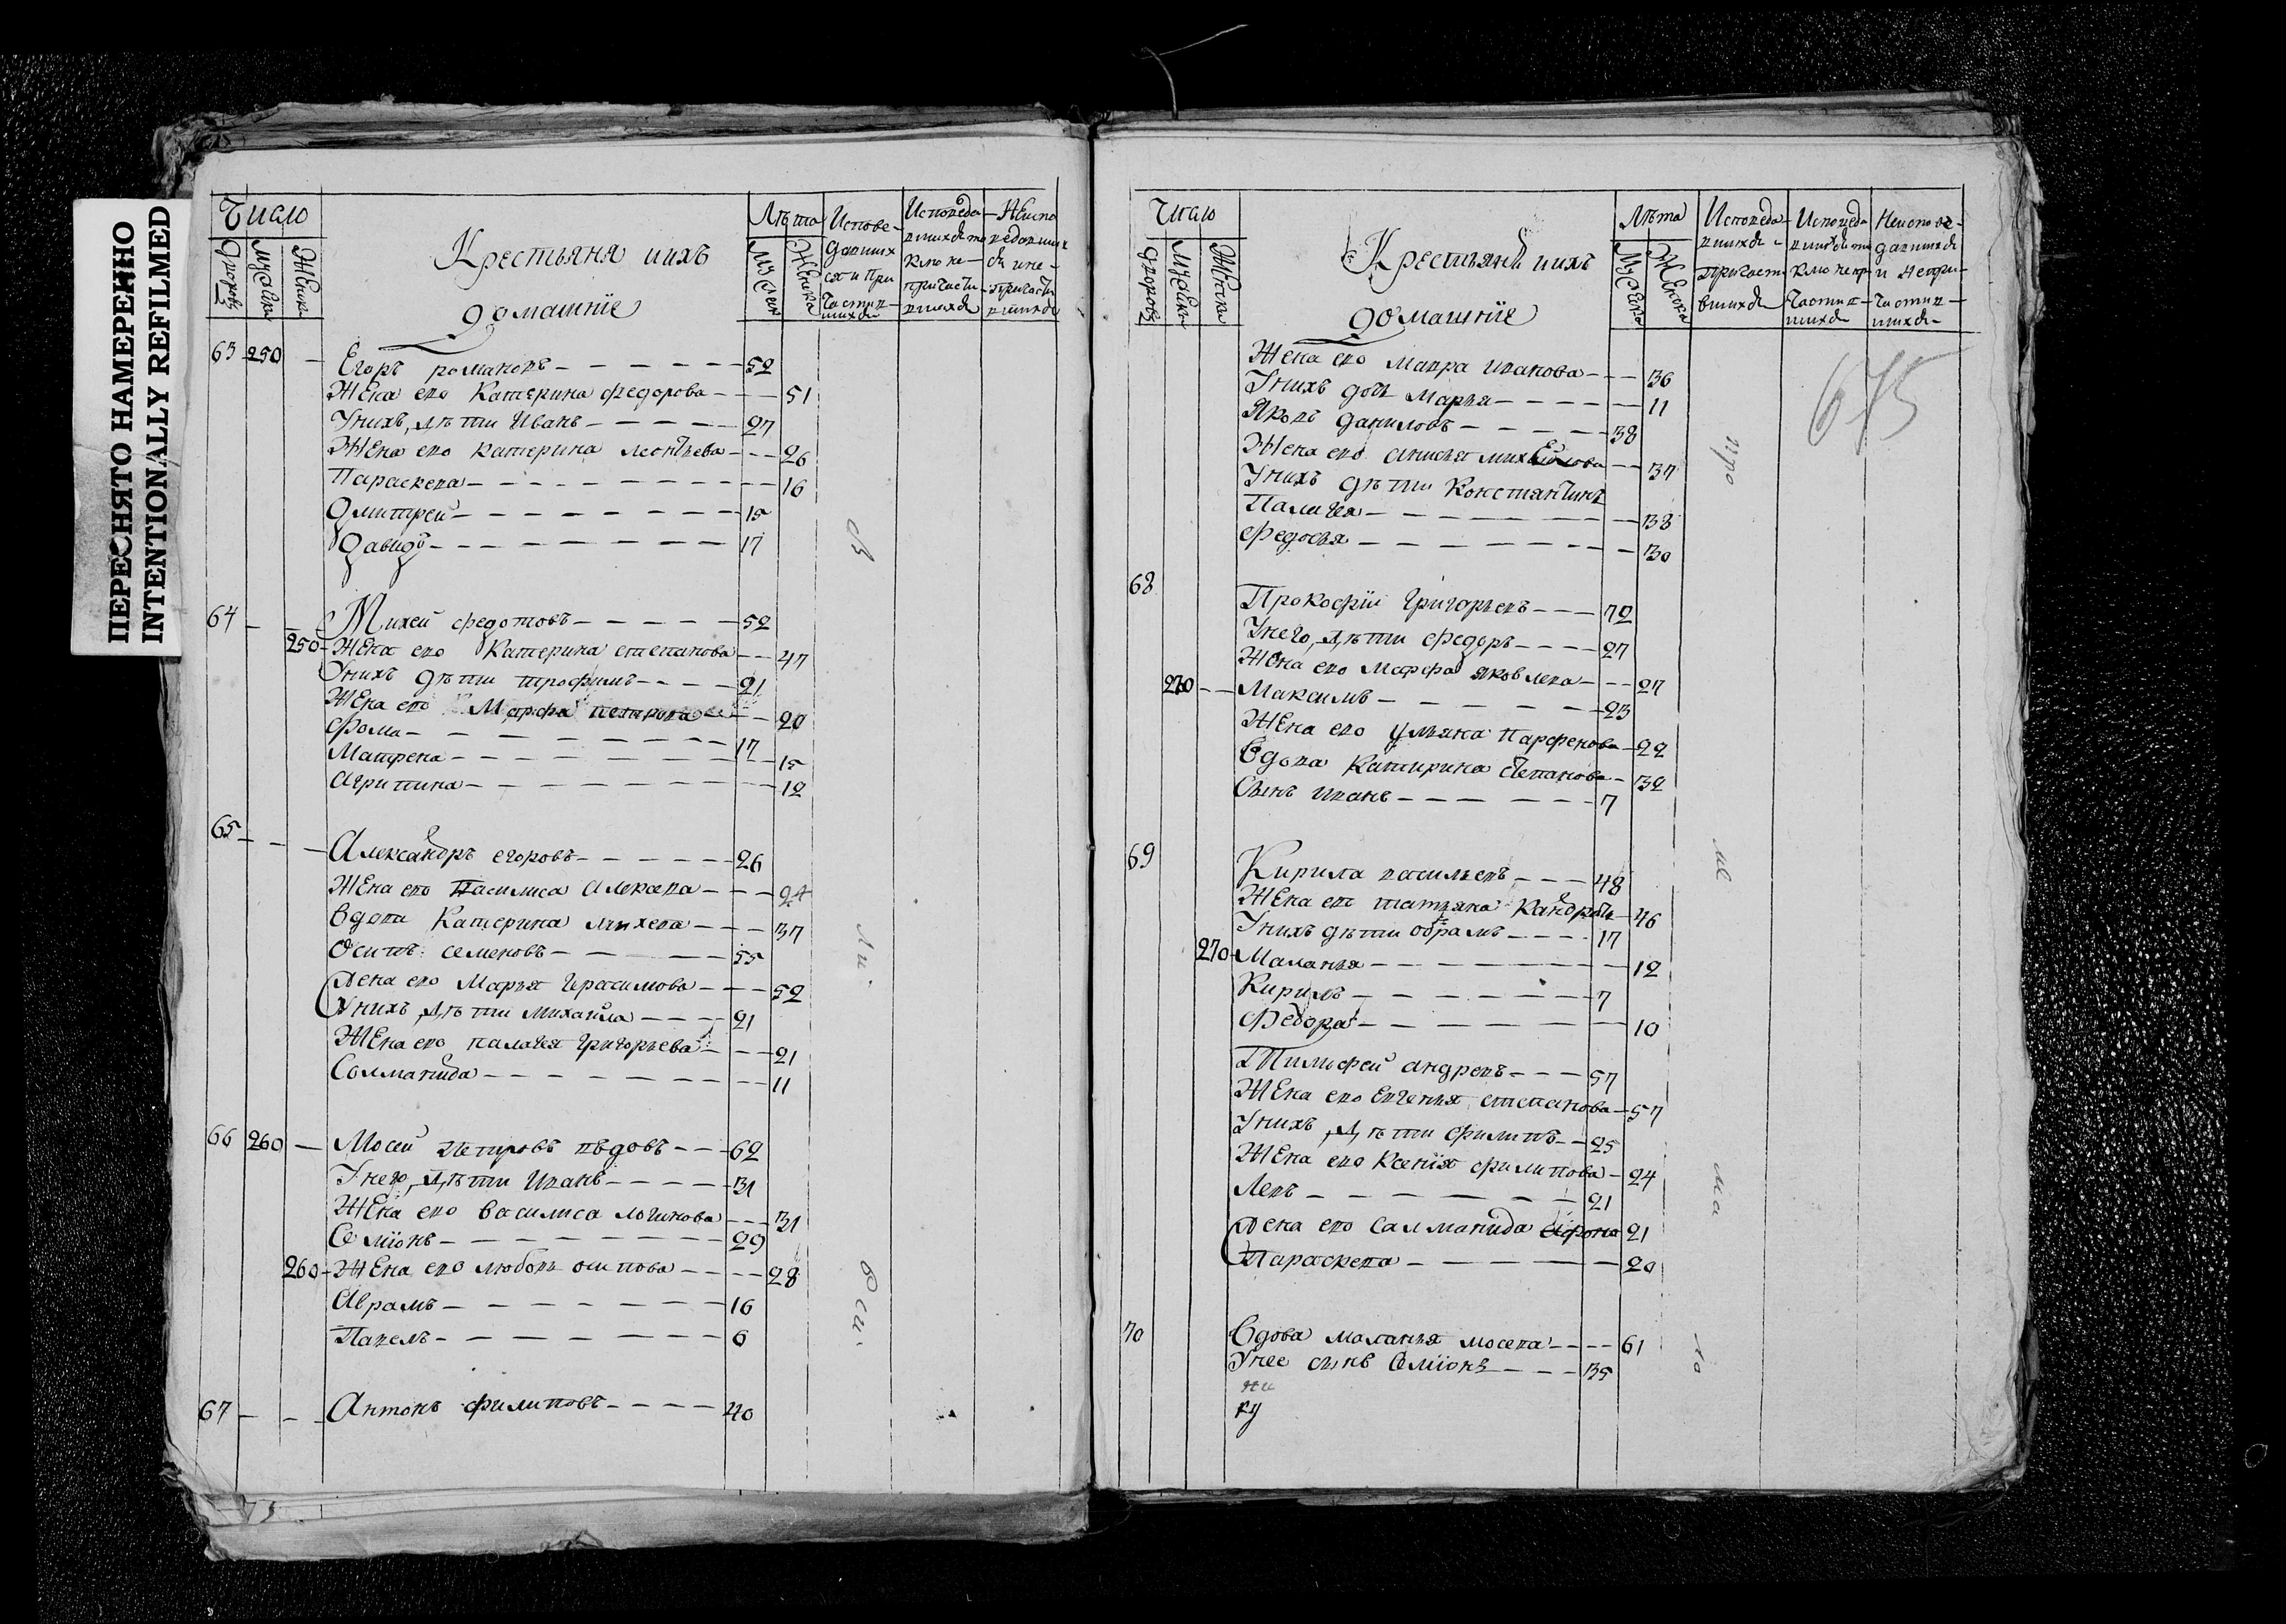 ПЕРЕСНЯТО НАМЕРЕННО
INTENTIONALLY REFILMED
Число
Дворовъ
Мужска
Женска
Крестьяня ихъ
домашніе
Лѣта
Мужеск
Женска
Испове-
давших
ся и при
частив-
шихся
Исповеда-
вшихся то
кмо не
причасти-
вшихся
Неиспо
ведавших
ся и не-
причасти
вшихся
63 250 — Егоръ романовъ — 52
Жена его Катерина федорова — 51
Унихъ, дѣти Иванъ — 27
Жена его катерина леонтьева — 26
Параскева — 16
Дмитрей — 15
Давидъ — 17
64 — — Михей федотовъ — 52
250 — Жена его Катерина степанова — 47
Унихъ дѣти трофимъ — 21
Жена его Марфа петрова — 20
Фома — 17
Матрена — 15
Агрипина — 12
65 — — — Александръ егоровъ — 26
Жена его Василиса Алексева — 24
Вдова Катерина михева — 37
Осипъ семеновъ — 55
Жена его Марья Герасимова — 52
Унихъ, дѣти михаила — 21
Жена его палагея григорьева — 21
Соломанида — 11
66 260 — Мосей петровъ вѣдовъ — 62
Унего, дѣти Иванъ — 31
Жена его василиса логинова — 31
Семіонъ — 29
260 — Жена его любовь осипова — 28
Аврамъ — 16
Павелъ — 6
67 — — — Антонъ филиповъ — 40
Число
Дворовъ
Мужска
Женска
Крестьянѣ ихъ
домашніе
Лѣта
Мужеска
Женска
Исповеда-
вшихся
Причаст
вшихся
Исповеда
вшихся то
кмо непр
частив-
шихся
Неиспове-
давшихся
и непри-
частив-
шихся
675
Жена его Мавра иванова — 36
Унихъ дочь Марья — 11
Яковъ даниловъ — 38
Жена его анисья михайлова — 37
Унихъ дѣти Константинъ
Палагея — 38
Федосья — 30
68
Прокофій григорьевъ — 72
Унего, дѣти федоръ — 27
Жена его Марфа яковлева — 27
270 — Максимъ — 23
Жена его ульяна Парфенова — 22
Вдова Катирина степанова — 32
Сынъ иванъ — 7
69
Кирила васильевъ — 48
Жена его татьяна Кандрать — 46
Унихъ дѣти обрамъ — 17
270 — Маланья — 12
Кирилъ — 7
Федора — 10
Тимофей андревъ — 57
Жена его евгенья степанова — 57
Унихъ, дѣти филипъ — 25
Жена его Ксенія филипова — 24
Левъ — 21
Жена его саломанида афона 21
Параскева — 20
70
Вдова маланья мосева — 61
Унее сынъ Семіонъ — 35
ку